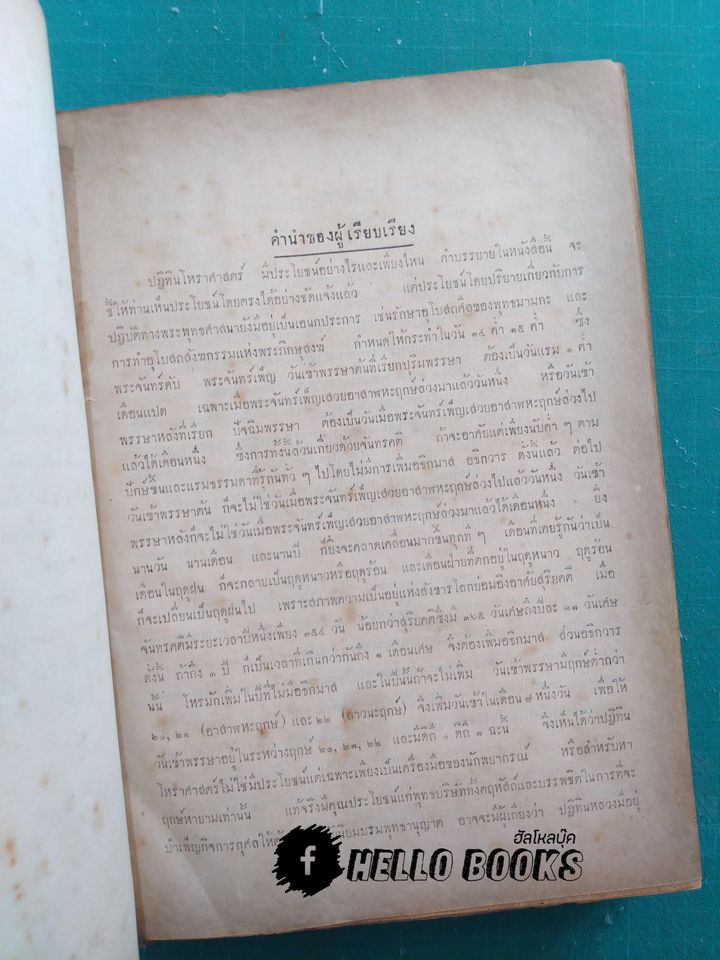 คำนำของผู้เรียบเรียง
ปฏิทินโหราศาสตร์ มีประโยชน์อย่างไรและเพียงไหน คำบรรยายในหนังสือนี้ จะ
ชี้ให้ท่านเห็นประโยชน์โดยตรงได้อย่างชัดแจ้งแล้ว แต่ประโยชน์โดยปริยายเกี่ยวกับการ
ปฏิบัติทางพระพุทธศาสนายังมีอยู่เป็นเอนกประการ เช่นรักษาอุโบสถศีลของพุทธมามกะ และ
การทำอุโบสถสังฆกรรมแห่งพระภิกษุสงฆ์ กำหนดให้กระทำในวัน ๑๔ ค่ำ ๑๕ ค่ำ ซึ่ง
พระจันทร์ดับ พระจันทร์เพ็ญ วันเข้าพรรษาต้นที่เรียกปุริมพรรษา ต้องเป็นวันแรม ๑ ค่ำ
เดือนแปด เฉพาะเมื่อพระจันทร์เพ็ญเสวยอาสาฬหะฤกษ์ล่วงมาแล้ววันหนึ่ง หรือวันเข้า
พรรษาหลังที่เรียก ปัจฉิมพรรษา ต้องเป็นวันเมื่อพระจันทร์เพ็ญเสวยอาสาฬหะฤกษ์ล่วงไป
แล้วได้เดือนหนึ่ง ซึ่งการทั้งนี้ล้วนเกี่ยวด้วยจันทรคติ ถ้าจะอาศัยแต่เพียงนับค่ำ ๆ ตาม
ปักษ์ขึ้นและแรมธรรมดาที่รู้กันทั่ว ๆ ไปโดยไม่มีการเพิ่มอธิกมาส อธิกวาร ดั่งนี้แล้ว ต่อไป
วันเข้าพรรษาต้น ก็จะไม่ใช่วันเมื่อพระจันทร์เพ็ญเสวยอาสาฬหะฤกษ์ล่วงไปแล้ววันหนึ่ง วันเข้า
พรรษาหลังก็จะไม่ใช่วันเมื่อพระจันทร์เพ็ญเสวยอาสาฬหะฤกษ์ล่วงมาแล้วได้เดือนหนึ่ง ยิ่ง
นานวัน นานเดือน และนานปี ก็ยิ่งจะคลาดเคลื่อนมากขึ้นทุกที ๆ เดือนที่เคยรู้กันว่าเป็น
เดือนในฤดูฝน ก็จะกลายเป็นฤดูหนาวหรือฤดูร้อน และเดือนฝ่ายที่ตกอยู่ในฤดูหนาว ฤดูร้อน
ก็จะเปลี่ยนเป็นฤดูฝนไป เพราะสภาพความเป็นอยู่แห่งสังขารโลกย่อมอิงอาศัยสุริยคติ เมื่อ
จันทรคติมีระยะเวลาปีหนึ่งเพียง ๓๕๔ วัน น้อยกว่าสุริยคติซึ่งมี ๓๖๕ วันเศษถึงปีละ ๑๑ วันเศษ
ดั่งนี้ ถ้าถึง ๓ ปี ก็เป็นเวลาที่เกินกว่ากันถึง ๑ เดือนเศษ จึงต้องเพิ่มอธิกมาส ส่วนอธิกวาร
นั้น โหรมักเพิ่มในปีที่ไม่มีอธิกมาส และในปีนั้นถ้าจะไม่เพิ่ม วันเข้าพรรษามีฤกษ์ต่ำกว่า
๒๐, ๒๑ (อาสาฬหะฤกษ์) และ ๒๒ (สาวนะฤกษ์) จึงเพิ่มวันเข้าในเดือน ๗ หนึ่งวัน เพื่อให้
วันเข้าพรรษาอยู่ในระหว่างฤกษ์ ๒๐, ๒๑, ๒๒ และมีดิถี ๐ ดิถี ๑ ฉะนี้ จึงเห็นได้ว่าปฏิทิน
โหราศาสตร์ไม่ใช่มีประโยชน์แต่เฉพาะเพียงเป็นเครื่องมือของนักพยากรณ์ หรือสำหรับหา
ฤกษ์หายามเท่านั้น แท้จริงมีคุณประโยชน์แก่พุทธบริษัททั้งคฤหัสถ์และบรรพชิตในการที่จะ
บำเพ็ญกิจการกุศลให้ นิยมบรมพุทธานุญาต อาจจะมีผู้เถียงว่า ปฏิทินหลวงมีอยู่
ฮัลโหลบุ๊ค
f HELLO BOOKS